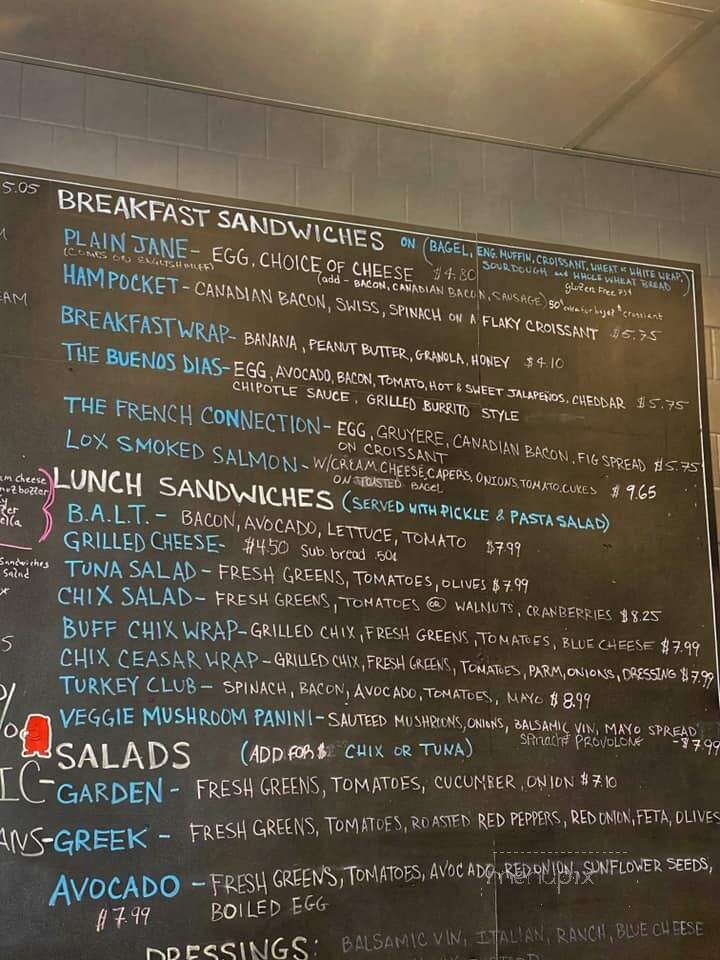 5.05
BREAKFAST SANDWICHES ON (BAGEL, ENG. MUFFIN, CROISSANT, WHEAT or WHITE WRAP,
SOURDOUGH and WHOLE WHEAT BREAD)
gluten Free 75¢
PLAIN JANE - EGG, CHOICE OF CHEESE $4.80
(COMES ON ENGLISH MUFF)
(add - BACON, CANADIAN BACON, SAUSAGE) 50¢ extra for bagel & croissant
HAM POCKET - CANADIAN BACON, SWISS, SPINACH ON A FLAKY CROISSANT $5.75
BREAKFAST WRAP - BANANA, PEANUT BUTTER, GRANOLA, HONEY $4.10
THE BUENOS DIAS - EGG, AVOCADO, BACON, TOMATO, HOT & SWEET JALAPEÑOS, CHEDDAR $5.75
CHIPOTLE SAUCE, GRILLED BURRITO STYLE
THE FRENCH CONNECTION - EGG, GRUYERE, CANADIAN BACON, FIG SPREAD $5.75
ON CROISSANT
LOX SMOKED SALMON - W/CREAM CHEESE, CAPERS, ONIONS, TOMATO, CUKES $9.65
ON TOASTED BAGEL
LUNCH SANDWICHES (SERVED WITH PICKLE & PASTA SALAD)
B.A.L.T. - BACON, AVOCADO, LETTUCE, TOMATO $7.99
GRILLED CHEESE - $4.50 Sub. bread .50¢
TUNA SALAD - FRESH GREENS, TOMATOES, OLIVES $7.99
CHIX SALAD - FRESH GREENS, TOMATOES OR WALNUTS, CRANBERRIES $8.25
BUFF CHIX WRAP - GRILLED CHIX, FRESH GREENS, TOMATOES, BLUE CHEESE $7.99
CHIX CEASAR WRAP - GRILLED CHIX, FRESH GREENS, TOMATOES, PARM, ONIONS, DRESSING $7.99
TURKEY CLUB - SPINACH, BACON, AVOCADO, TOMATOES, MAYO $8.99
VEGGIE MUSHROOM PANINI - SAUTEED MUSHROOMS, ONIONS, BALSAMIC VIN, MAYO SPREAD
spinach & PROVOLONE - $7.99
SALADS (ADD FOR $2 CHIX OR TUNA)
GARDEN - FRESH GREENS, TOMATOES, CUCUMBER, ONION $7.10
GREEK - FRESH GREENS, TOMATOES, ROASTED RED PEPPERS, RED ONION, FETA, OLIVES
AVOCADO - FRESH GREENS, TOMATOES, AVOCADO, RED ONION, SUNFLOWER SEEDS,
$7.99 BOILED EGG
menupix
DRESSINGS: BALSAMIC VIN, ITALIAN, RANCH, BLUE CHEESE